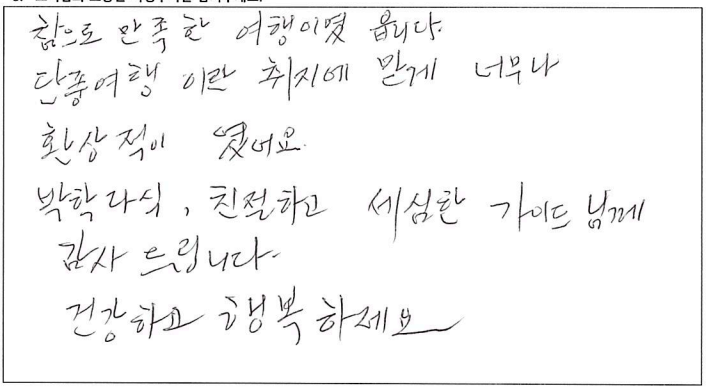 참으로 만족한 여행이였읍니다.
단풍여행 이란 취지에 맏게 너무나
환상적이 였어요.
박학다식, 친절하고 세심한 가이드님께
감사 드립니다.
건강하고 행복하세요